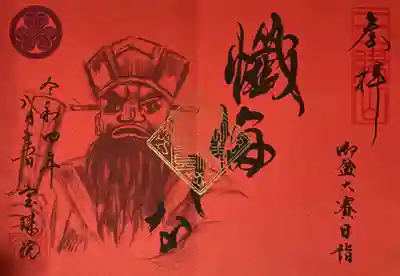 奉拝
御盆大賽日詣
懺悔
令和四年
八月
宝珠院